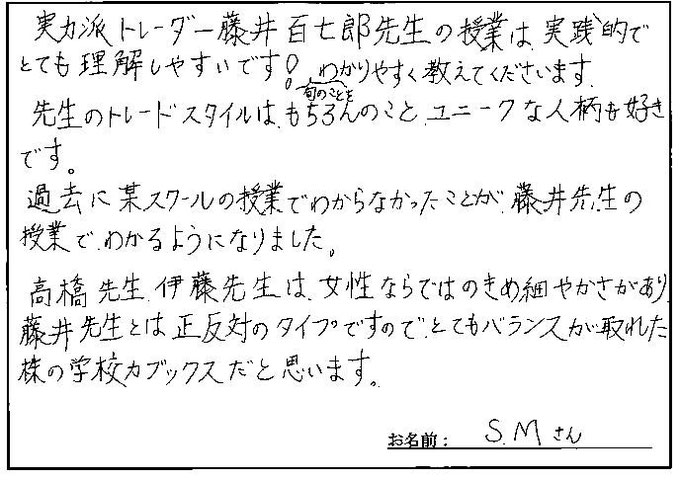 実力派トレーダー藤井百七郎先生の授業は、実践的で
とても理解しやすいです!旬のことをわかりやすく教えてくださいます。
先生のトレードスタイルは、もちろんのこと、ユニークな人柄も好き
です。
過去に某スクールの授業でわからなかったことが、藤井先生の
授業で、わかるようになりました。
高橋先生、伊藤先生は、女性ならではのきめ細やかさがあり、
藤井先生とは正反対のタイプですので、とてもバランスが取れた
株の学校カブックスだと思います。
お名前: S.Mさん